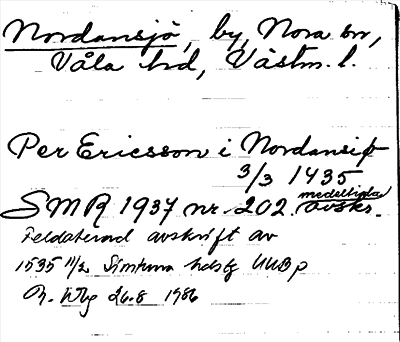 Nordansjö, by, Nora sn,
Våla hd, Västm. l.
Per Ericsson i Nordansiø
3/3 1435
SMR 1937 nr. 202. medeltida avskr.
Feldaterad avskrift av
1535 11/2 Simtuna hdsbg UUB p
26.8 1986